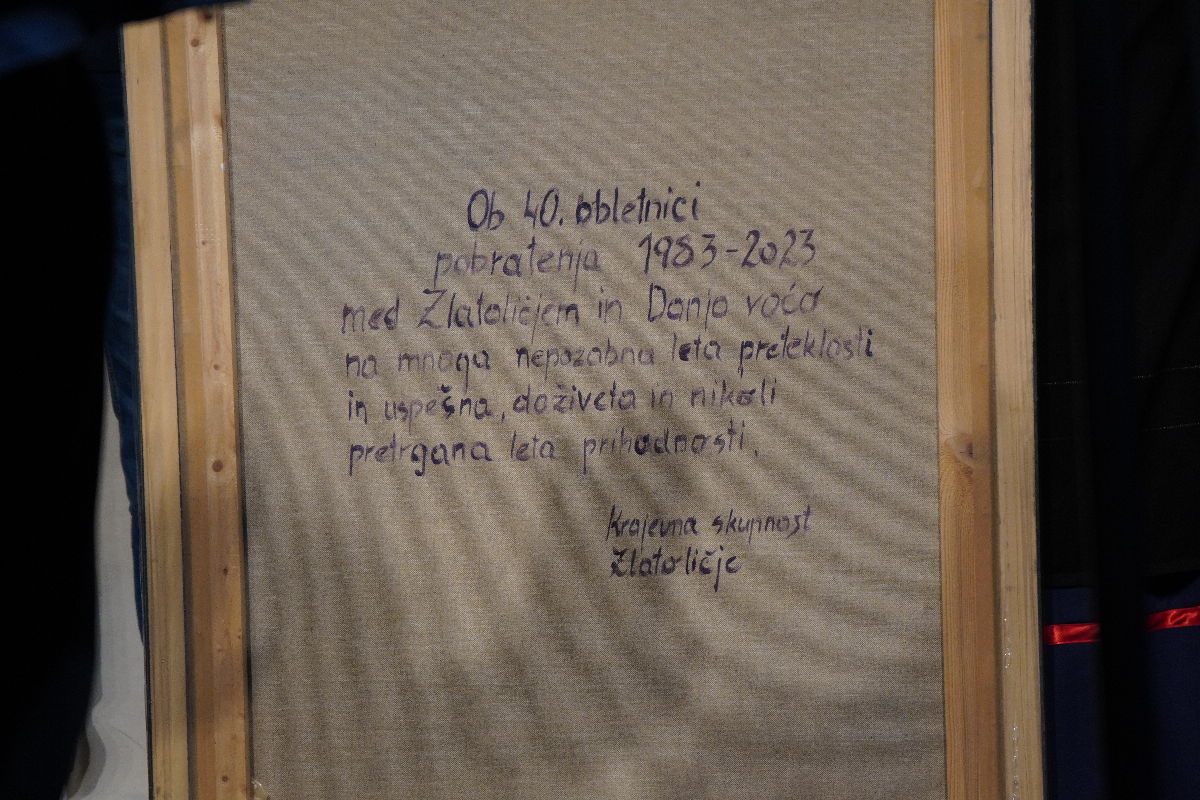 Ob 40. obletnici
pobratenja 1983-2023
med Zlatoličjem in Donjo voćo
na mnoga nepozabna leta preteklosti
in uspešna, doživeta in nikoli
pretrgana leta prihodnosti.
Krajevna skupnost
Zlatoličje